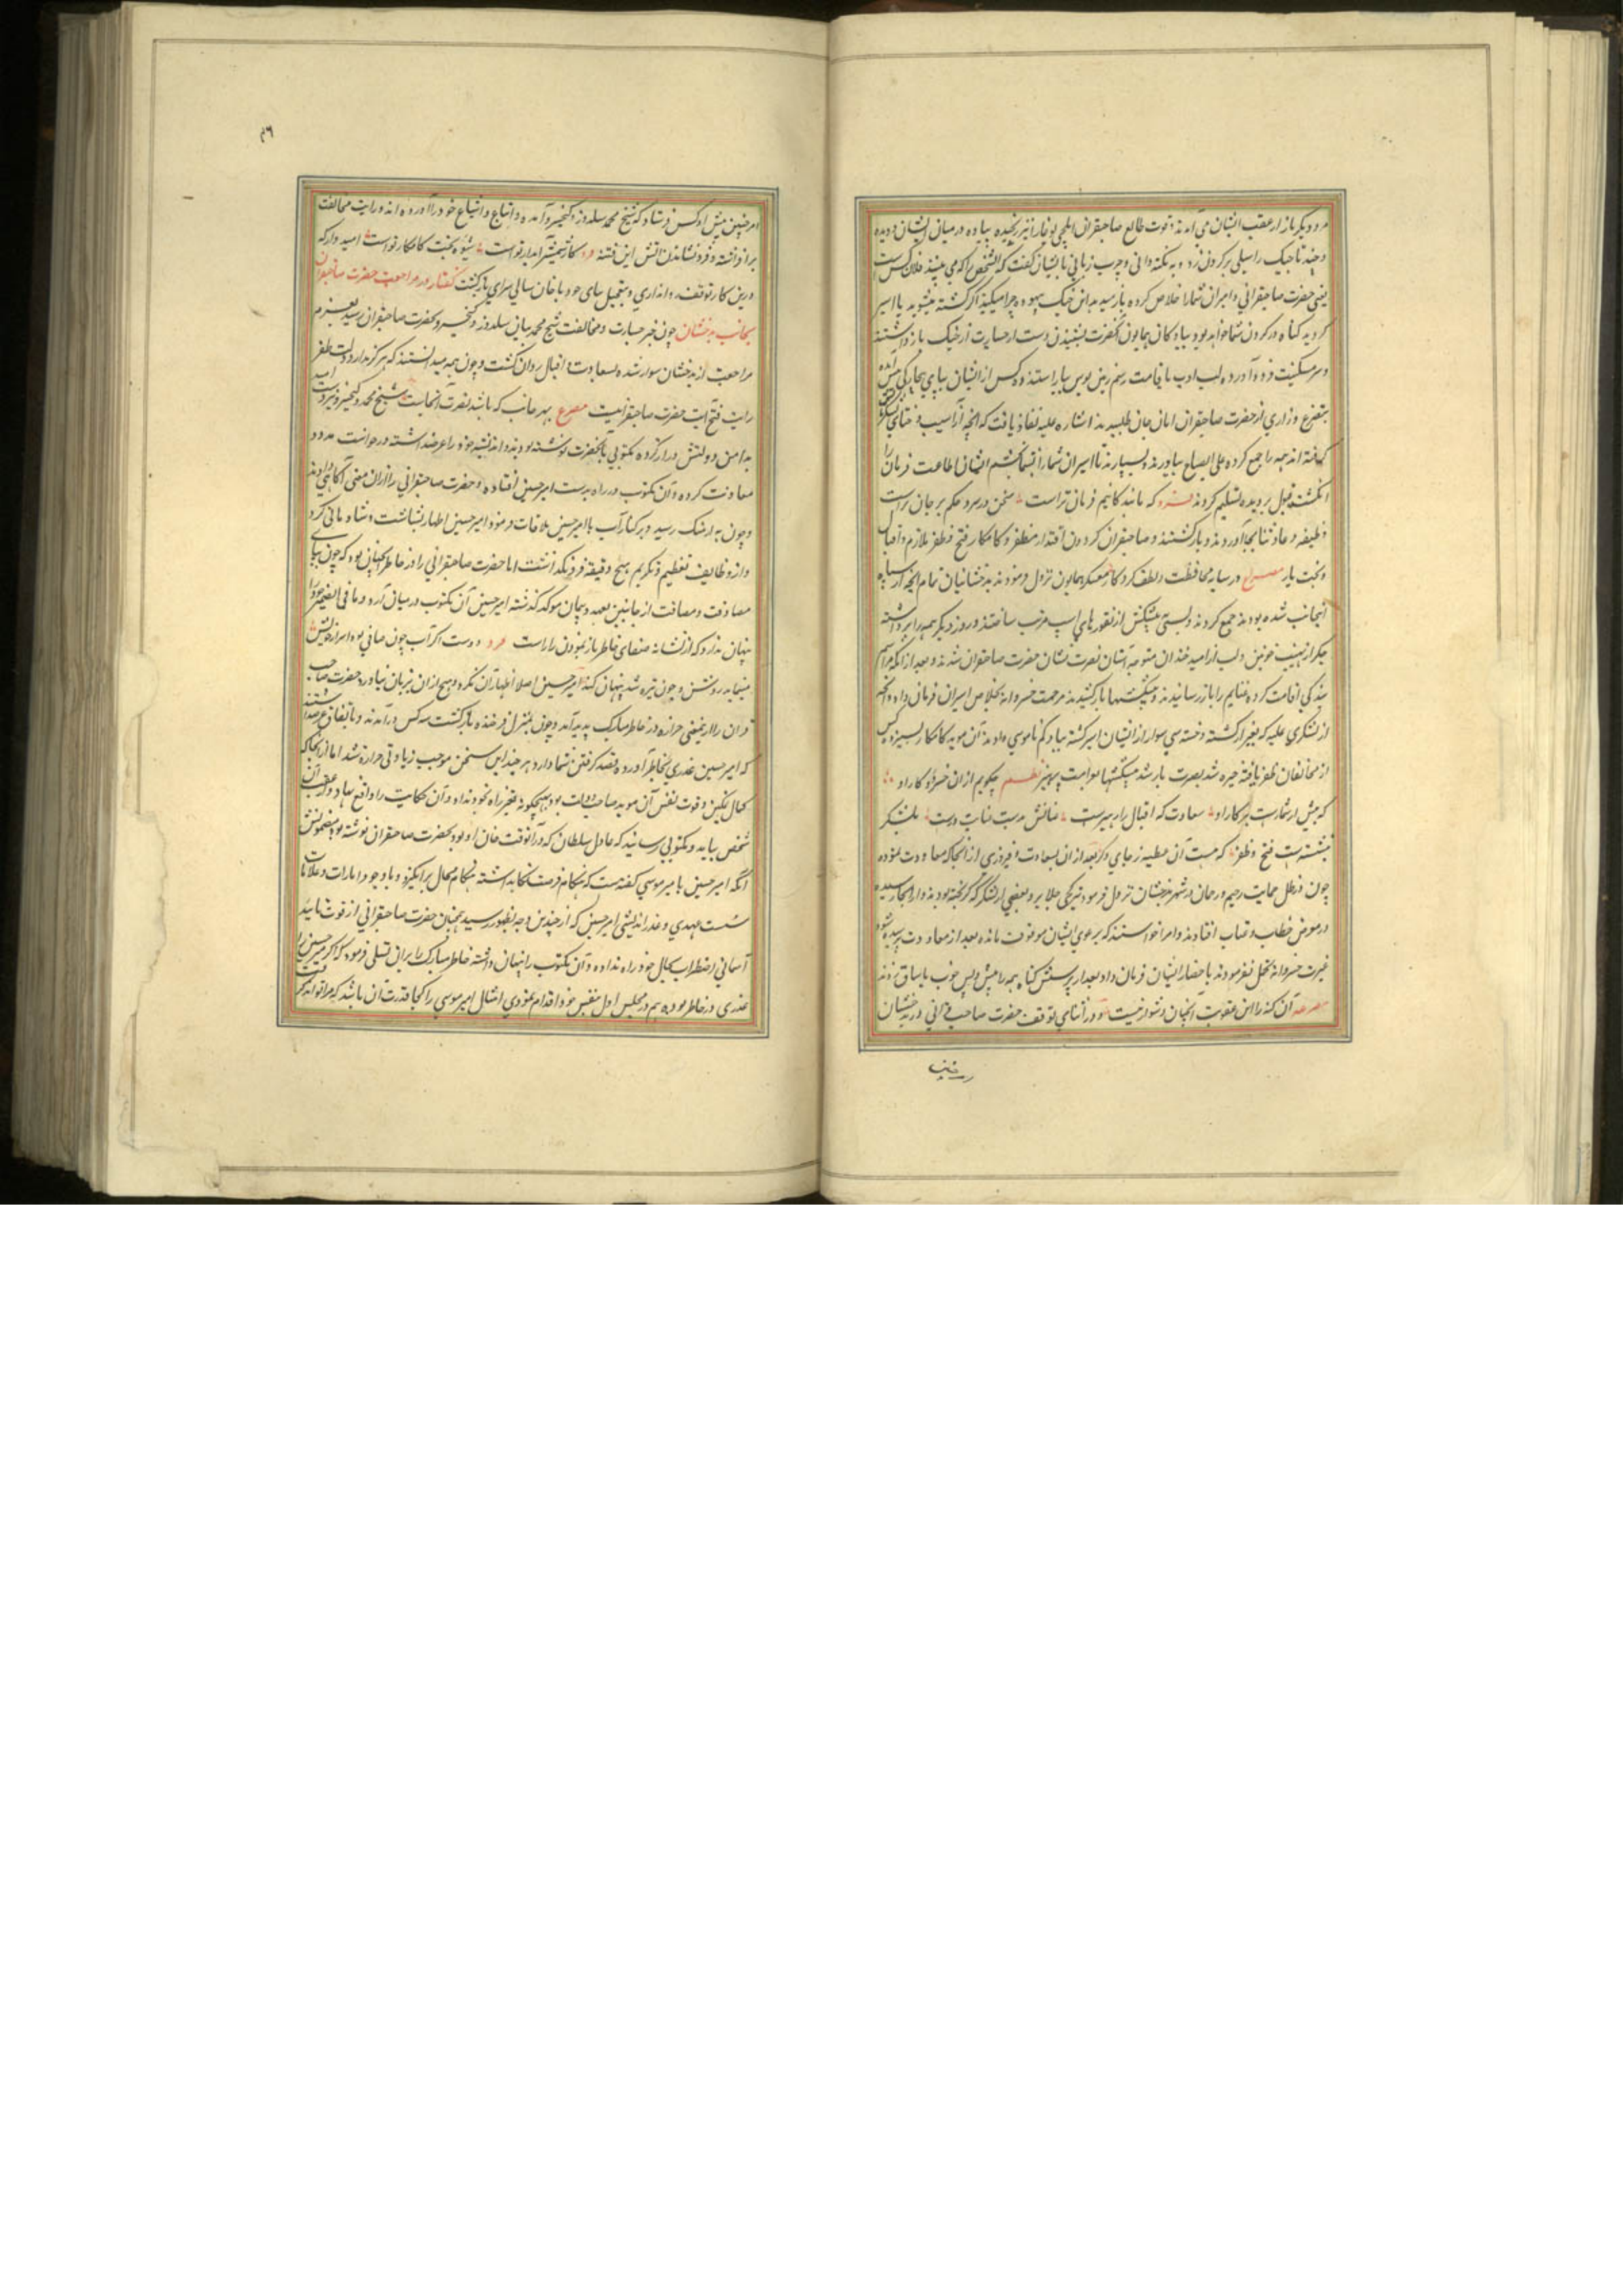 مرد دیگر باز از عقب ایشان می آمدند قوت طالع صاحبقران ایلچی بوغا را نیز رنجیده پیاده در میان ایشان دویده
و چند تاجیک را سیلی بر گردن زد و به نکته دانی و چرب زبانی با ایشان گفت که آن شخص را که می بینید فلان کس است
یعنی حضرت صاحبقرانی و امیران شما را خلاص کرده باز رسید بدین جنگ بیهوده چرا میکنید اگر کشته میشوید یا اسیر
گردید گناه در گردن شما خواهد بود پیادگان همایون آنحضرت بشنیدن دست از جسارت از جنگ باز داشتند
و سر مسکنت فرود آورده لب ادب با قامت رسم زمین بوس بیاراستند و دو کس از ایشان بپای بیچارگی پیش آمده
بتضرع و زاری از حضرت صاحبقران امان جان طلبیدند اشاره علیه نفاذ یافت که آنچه از اسب و جبای لشکر
گرفته اند همه را جمع کرده علی الصباح بیاورند و بسپارند تا اسیران شما را ببخشم ایشان اطاعت فرمان را
انگشت قبول بر دیده تسلیم کردند که ما بندگانیم فرمان تراست سخن در سر و حکم بر جان تراست
وظیفه دعا و ثنا بجا آوردند و بازگشتند و صاحبقران گردون اقتدار مظفر و کامکار فتح و ظفر ملازم و اقبال
و بخت یار مصراع در سایه محافظت و لطف کردگار بمعسکر همایون نزول فرمودند بدخشانیان تمام آنچه از سپاه
اینجانب شده بودند جمع کردند و بسی پیشکش از تقورهای اسب مرتب ساختند و روز دیگر همه را برداشته
جگر از نهیب خونین و لب از امید خندان متوجه آستان نصرت نشان حضرت صاحبقران شدند و بعد از آنکه مراسم
بندگی اقامت کرده غنایم را باز رسانیدند و پیشکشها بازکشیدند مرحمت خسروانه بخلاص اسیران فرمان داد و آنچه
از لشکری علیه که بغیر از کشته و خسته سی سوار از ایشان اسیر گشته بیاد کم ناموسی داده بودند آن موید کامکار بسیزده کس
از مخالفان ظفر یافته خیره شد بصرت باز شد پیشکشها نظم چگویم از آن خسرو و کار او
که بیش از شمارست پیکار او سعادت که اقبال را رهبرست بلشکر
نبشتست فتح و ظفر که هست آن عطیه ز جای دگر بعد از آن بسعادت و فیروزی از آنجا معاودت نموده
چون در ظل حمایت رحیم و رحمان در شهر بدخشان نزول فرمود تیزکچی جلایر و بعضی از لشکر که گریخته بودند و از آنجا رسیده
در معرض خطاب و عتاب افتادند و امرا خواستند که یرغوی ایشان موقوف مانده بعد از معاودت پرسیده شود
غیرت خسروانه تحمل نفرمود به احضار ایشان فرمان داد و بعد از پرسش گناه همه را پیش و پس چوب یاساق زدند
مصرعه آن گنه را این عقوبت آنچنان دشوار نیست و در اثنای توقف حضرت صاحبقرانی در بدخشان
امیر حسین پیش او کس فرستاد که شیخ محمد سلدوز و کیخسرو آمده و اتباع و اشیاع خود را آورده اند و رایت مخالفت
برافراشته و فرونشاندن آتش این فتنه فرد کار شمشیر آبدار تو است شیوه بخت کامکار تو است امید وار که
درین کار توقف روا نداری و بتعجیل بیای خود با خان سالی سرای بازگشت گفتار در مراجعت حضرت صاحبقران
بجانب بدخشان چون خبر جسارت و مخالفت شیخ محمد بیان سلدوز و کیخسرو بحضرت صاحبقران رسید بعزم
مراجعت از بدخشان سوار شده بسعادت و اقبال روان گشت و چون همه میدانستند که هرگز مدار دولت ظفر
رایت فتح آیت حضرت صاحبقرانیست مصرع بهر جانب که باشد نصرت آنجاست شیخ محمد و کیخسرو نیز دست امید
بدامن دولتش دراز کرده مکتوبی بآنحضرت نوشته بودند و اندیشه خود را عرضه داشته درخواست مدد و
معاونت کرده و آن مکتوب در راه بدست امیر حسین افتاده و حضرت صاحبقرانی را از آن معنی آگاهی دادند
و چون به ارهنگ رسید و بر کنار آب با امیر حسین ملاقات فرمود امیر حسین اظهار بشاشت و شادمانی کرد
و از وظایف تعظیم و تکریم هیچ دقیقه فرو نگذاشت اما حضرت صاحبقرانی را در خاطر آنچنان بود که چون مبانی
مصادقت و مصافات از جانبین بعهد و پیمان موکد گذشته امیر حسین آن مکتوب در میان آرد و ما فی الضمیر خود را
پنهان ندارد که از نشانه صفای خاطر باز نمودن راز است فرد دوست اگر آب چون صافی بود اسرار خویش
مینماید روشن و چون تیره شد پنهان کند امیر حسین اصلا اظهار آن نکرد و هیچ از آن بزبان نیاورد حضرت صاحب
قران را از این معنی حرازه در خاطر مبارک پدید آمد و چون بمنزل فرخنده بازگشت سه کس درآمدند و باتفاق عرضه داشتند
که امیر حسین غدری بخاطر آورده و قصد گرفتن شما دارد هر چند این سخن موجب زیادتی حرازه شد اما از آنجا که
کمال تمکین و قوت نفس آن موید صاحب دولت بود هیچگونه تغیر راه بخود نداد و آن حکایت را واقع ننهاد در عقب آن
شخصی بیامد و مکتوبی رسانید که عادل سلطان که در آنوقت خان او بود بحضرت صاحبقران نوشته بود مضمونش
آنکه امیر حسین با میر موسی گفته است که هنگام فرصت نگاه داشته هنگام مجال برانگیزد و با وجود امارات و علامات
سست عهدی و غدر اندیشی امیر حسین که از چندین وجه بظهور رسید همچنان حضرت صاحبقرانی از قوت تایید
آسمانی اضطراب بحال خود راه نداده و آن مکتوب را پنهان داشته خاطر مبارک را بر این تسلی فرمود که اگر امیر حسین را
غدری در خاطر بودی هم در مجلس اول بنفس خود اقدام نمودی امثال امیر موسی را کجا قدرت آن باشد که مرا تواند گرفت